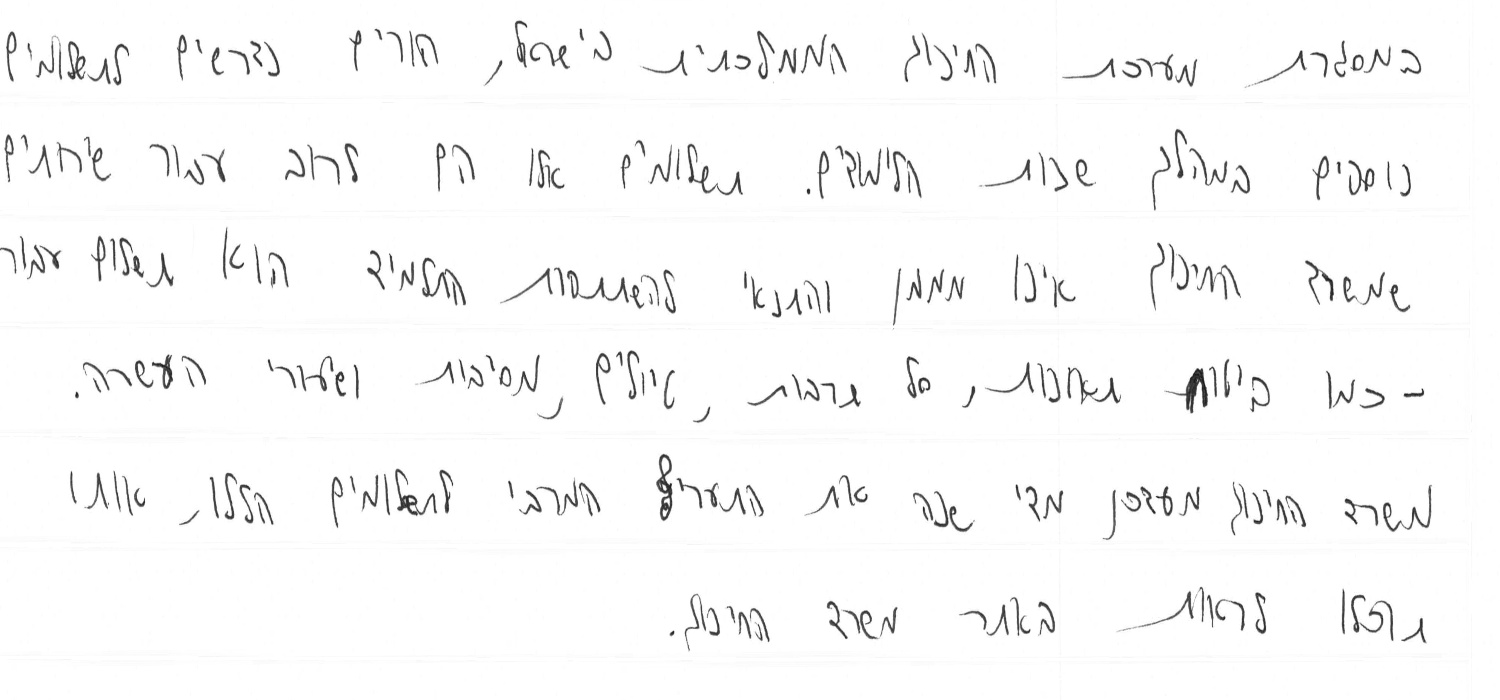 במסגרת מערכת החינוך הממלכתית בישראל, הורים נדרשים לתשלומים
נוספים במהלך שנות הלימודים. תשלומים אלו הם לרוב עבור שירותים
שמשרד החינוך אינו מממן והתנאי להשתתפות התלמיד הוא תשלום עבור
- כמו ביטוח תאונות, סל תרבות, טיולים, מסיבות ושיעורי העשרה.
משרד החינוך מעדכן מדי שנה את התעריף המרבי לתשלומים הללו, אותו
תוכלו לראות באתר משרד החינוך.